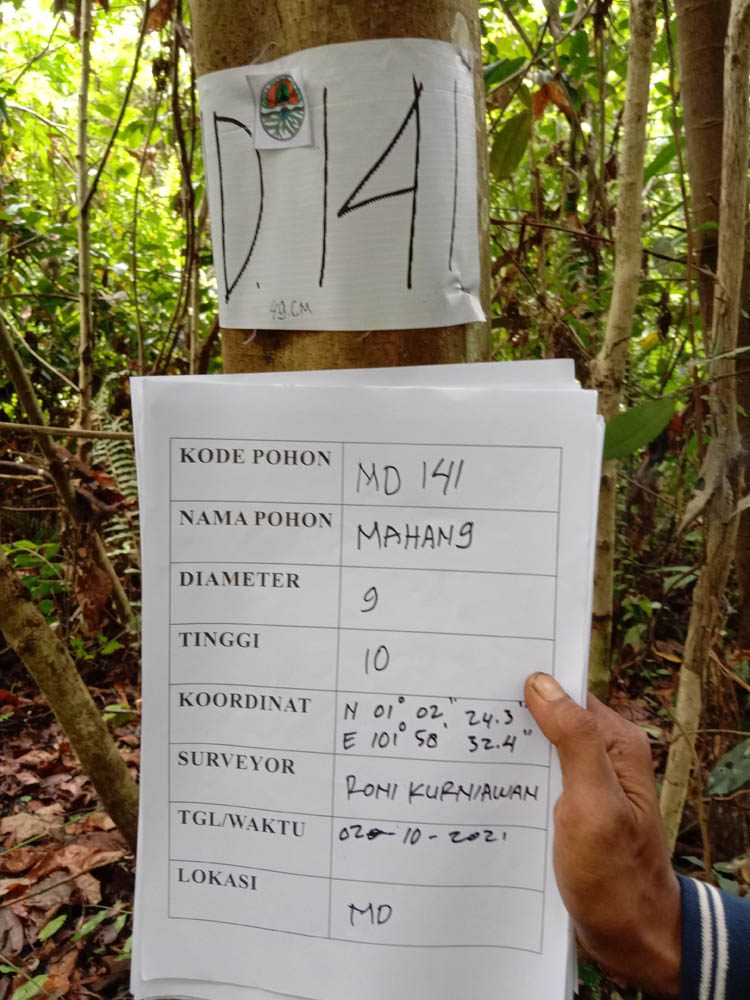 D.141
49.CM
KODE POHON MD 141
NAMA POHON MAHANG
DIAMETER 9
TINGGI 10
KOORDINAT N 01° 02' 24.3"
E 101° 58' 32.4"
SURVEYOR RONI KURNIAWAN
TGL/WAKTU 02-10-2021
LOKASI MD